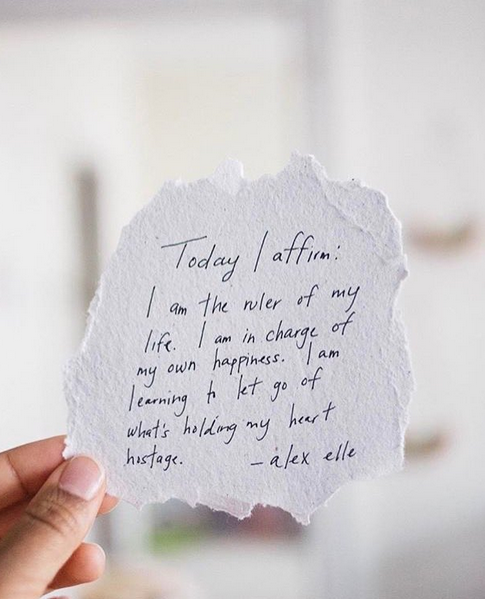 Today I affirm:
I am the ruler of my
life. I am in charge of
my own happiness. I am
learning to let go of
what's holding my heart
hostage. – alex elle